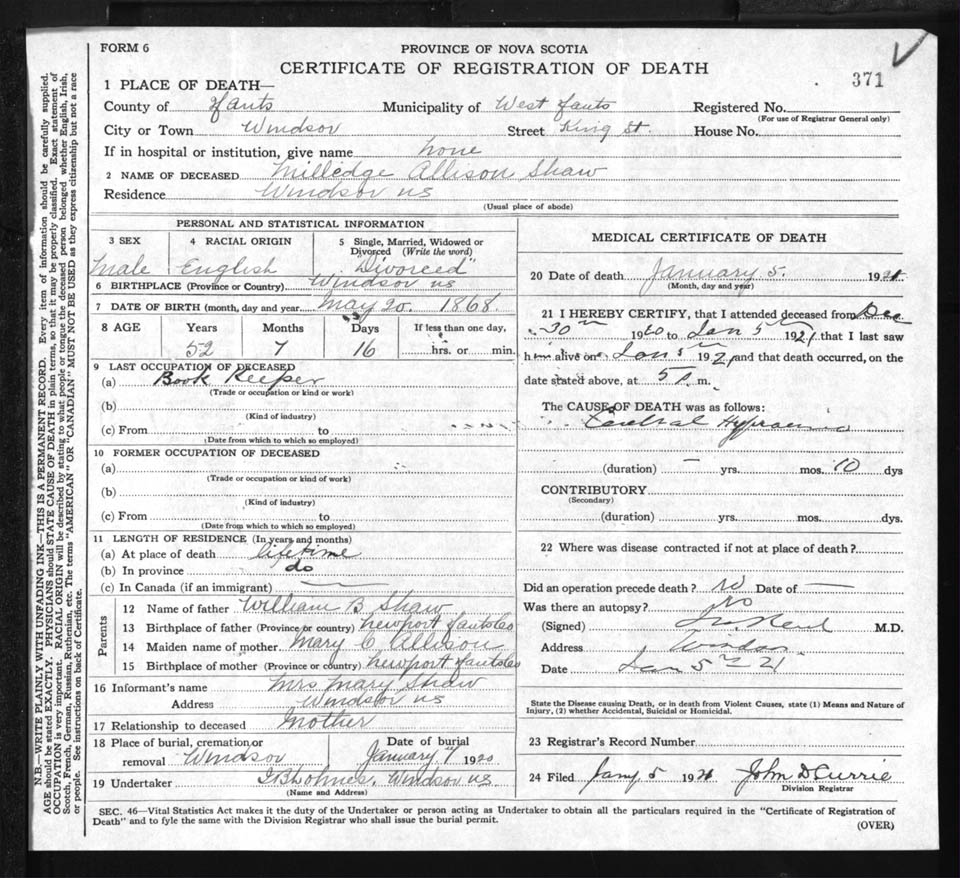 FORM 6
PROVINCE OF NOVA SCOTIA
CERTIFICATE OF REGISTRATION OF DEATH
371
1 PLACE OF DEATH—
County of Hants Municipality of West Hants Registered No.
(For use of Registrar General only)
City or Town Windsor Street King St. House No.
If in hospital or institution, give name none
2 NAME OF DECEASED Milledge Allison Shaw
Residence Windsor NS
(Usual place of abode)
PERSONAL AND STATISTICAL INFORMATION
3 SEX Male
4 RACIAL ORIGIN English
5 Single, Married, Widowed or Divorced (Write the word) "Divorced"
6 BIRTHPLACE (Province or Country) Windsor NS
7 DATE OF BIRTH (month, day and year May 20. 1868
8 AGE Years Months Days If less than one day,
52 7 16 hrs. or min.
9 LAST OCCUPATION OF DECEASED
(a) Book Keeper
(Trade or occupation or kind or work)
(b)
(Kind of industry)
(c) From to
(Date from which to which so employed)
10 FORMER OCCUPATION OF DECEASED
(a)
(Trade or occupation or kind or work)
(b)
(Kind of industry)
(c) From to
(Date from which to which so employed)
11 LENGTH OF RESIDENCE (In years and months)
(a) At place of death lifetime
(b) In province do
(c) In Canada (if an immigrant)
Parents
12 Name of father William B Shaw
13 Birthplace of father (Province or country) Newport Hants Co
14 Maiden name of mother Mary C Allison
15 Birthplace of mother (Province or country) Newport Hants Co
16 Informant's name Mrs Mary Shaw
Address Windsor NS
17 Relationship to deceased Mother
18 Place of burial, cremation or removal Windsor Date of burial January 7 1920
19 Undertaker Windsor NS
(Name and Address)
MEDICAL CERTIFICATE OF DEATH
20 Date of death January 5. 1921
(Month, day and year)
21 I HEREBY CERTIFY, that I attended deceased from Dec
30th 1920 to Jan 5th 1921 that I last saw
him alive on Jan 5th 1921 and that death occurred, on the
date stated above, at 5 m.
The CAUSE OF DEATH was as follows:
Cerebral
(duration) — yrs. mos. 10 dys
CONTRIBUTORY
(Secondary)
(duration) yrs. mos. dys.
22 Where was disease contracted if not at place of death?
Did an operation precede death? No Date of —
Was there an autopsy? No
(Signed) M.D.
Address Windsor
Date Jan 5th 21
State the Disease causing Death, or in death from Violent Causes, state (1) Means and Nature of
Injury, (2) whether Accidental, Suicidal or Homicidal.
23 Registrar's Record Number
24 Filed Jany 5 1921 John D Currie
Division Registrar
SEC. 46—Vital Statistics Act makes it the duty of the Undertaker or person acting as Undertaker to obtain all the particulars required in the "Certificate of Registration of
Death" and to fyle the same with the Division Registrar who shall issue the burial permit.
(OVER)
N.B.—WRITE PLAINLY WITH UNFADING INK—THIS IS A PERMANENT RECORD. Every item of information should be carefully supplied.
AGE should be stated EXACTLY. PHYSICIANS should STATE CAUSE OF DEATH in plain terms, so that it may be properly classified. Exact statement of
OCCUPATION is very important. RACIAL ORIGIN will be described by stating to what people or tongue the deceased person belonged whether English, Irish,
Scotch, French, German, Russian, Ruthenian, etc. The terms "AMERICAN" or "CANADIAN" MUST NOT BE USED as they express citizenship but not a race
or people. See instructions on back of Certificate.